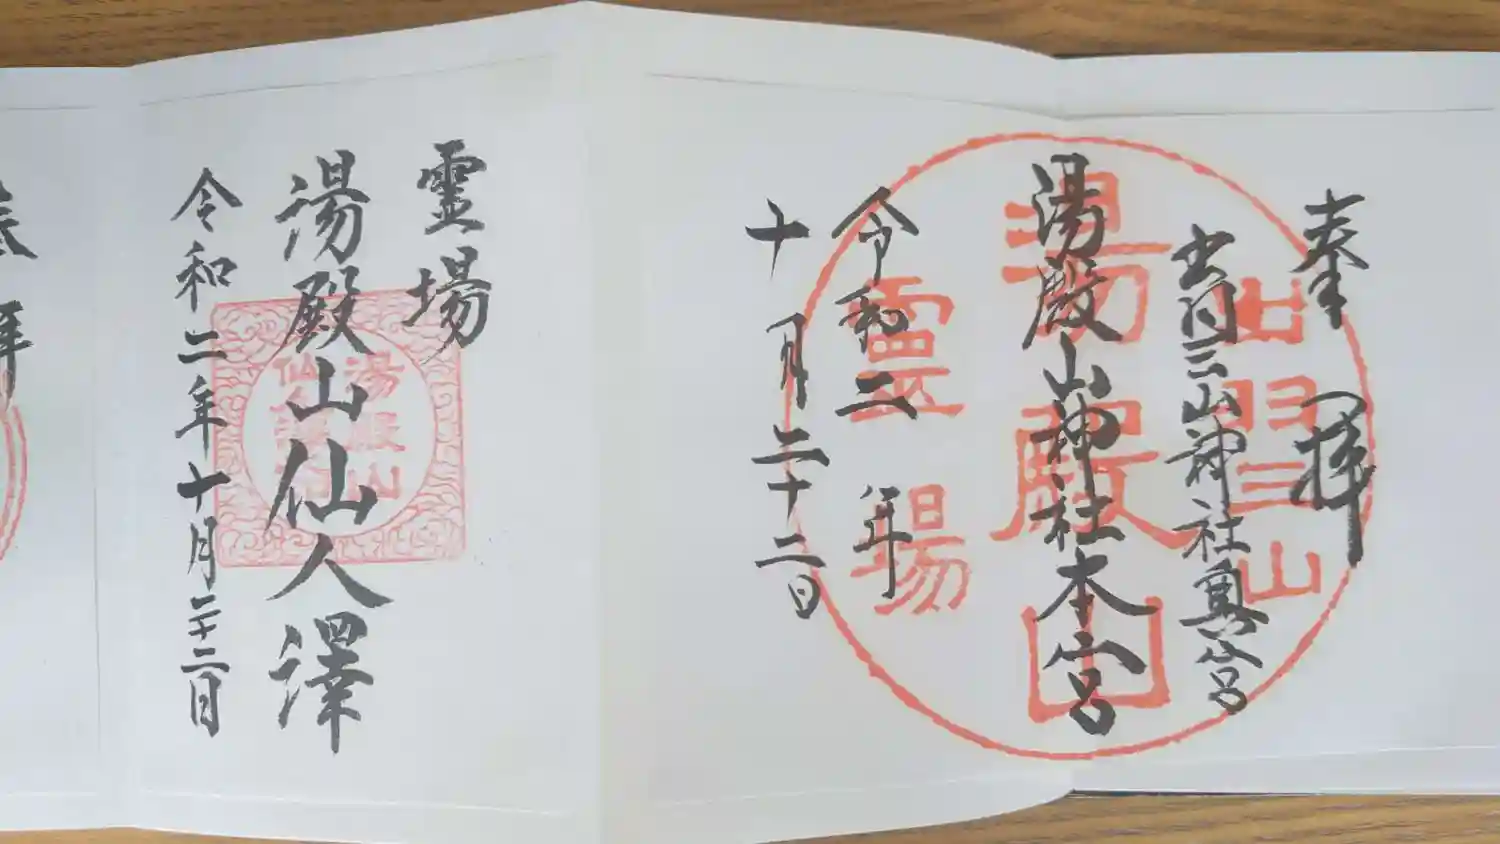 奉拝
出羽三山神社奥宮
湯殿山神社本宮
令和二年
十月二十二日
出羽三山
湯殿山
霊場
霊場
湯殿山仙人澤
令和二年十月二十二日
湯殿山
拝